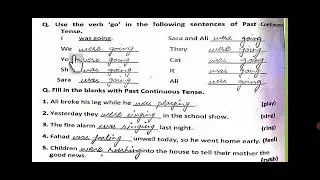 Q. Use the verb 'go' in the following sentences of Past Continuous
Tense.
I was going. Sara and Ali were going
We were going They were going
Yo were going Cat was going
Sh was going It was going
Sara was going Ali was going
Q. Fill in the blanks with Past Continuous Tense.
1. Ali broke his leg while he was playing. (play)
2. Yesterday they were singing in the school show. (sing)
3. The fire alarm was ringing last night. (ring)
4. Fahad was feeling unwell today, so he went home early. (feel)
5. Children were rushing into the house to tell their mother the
good news. (rush)